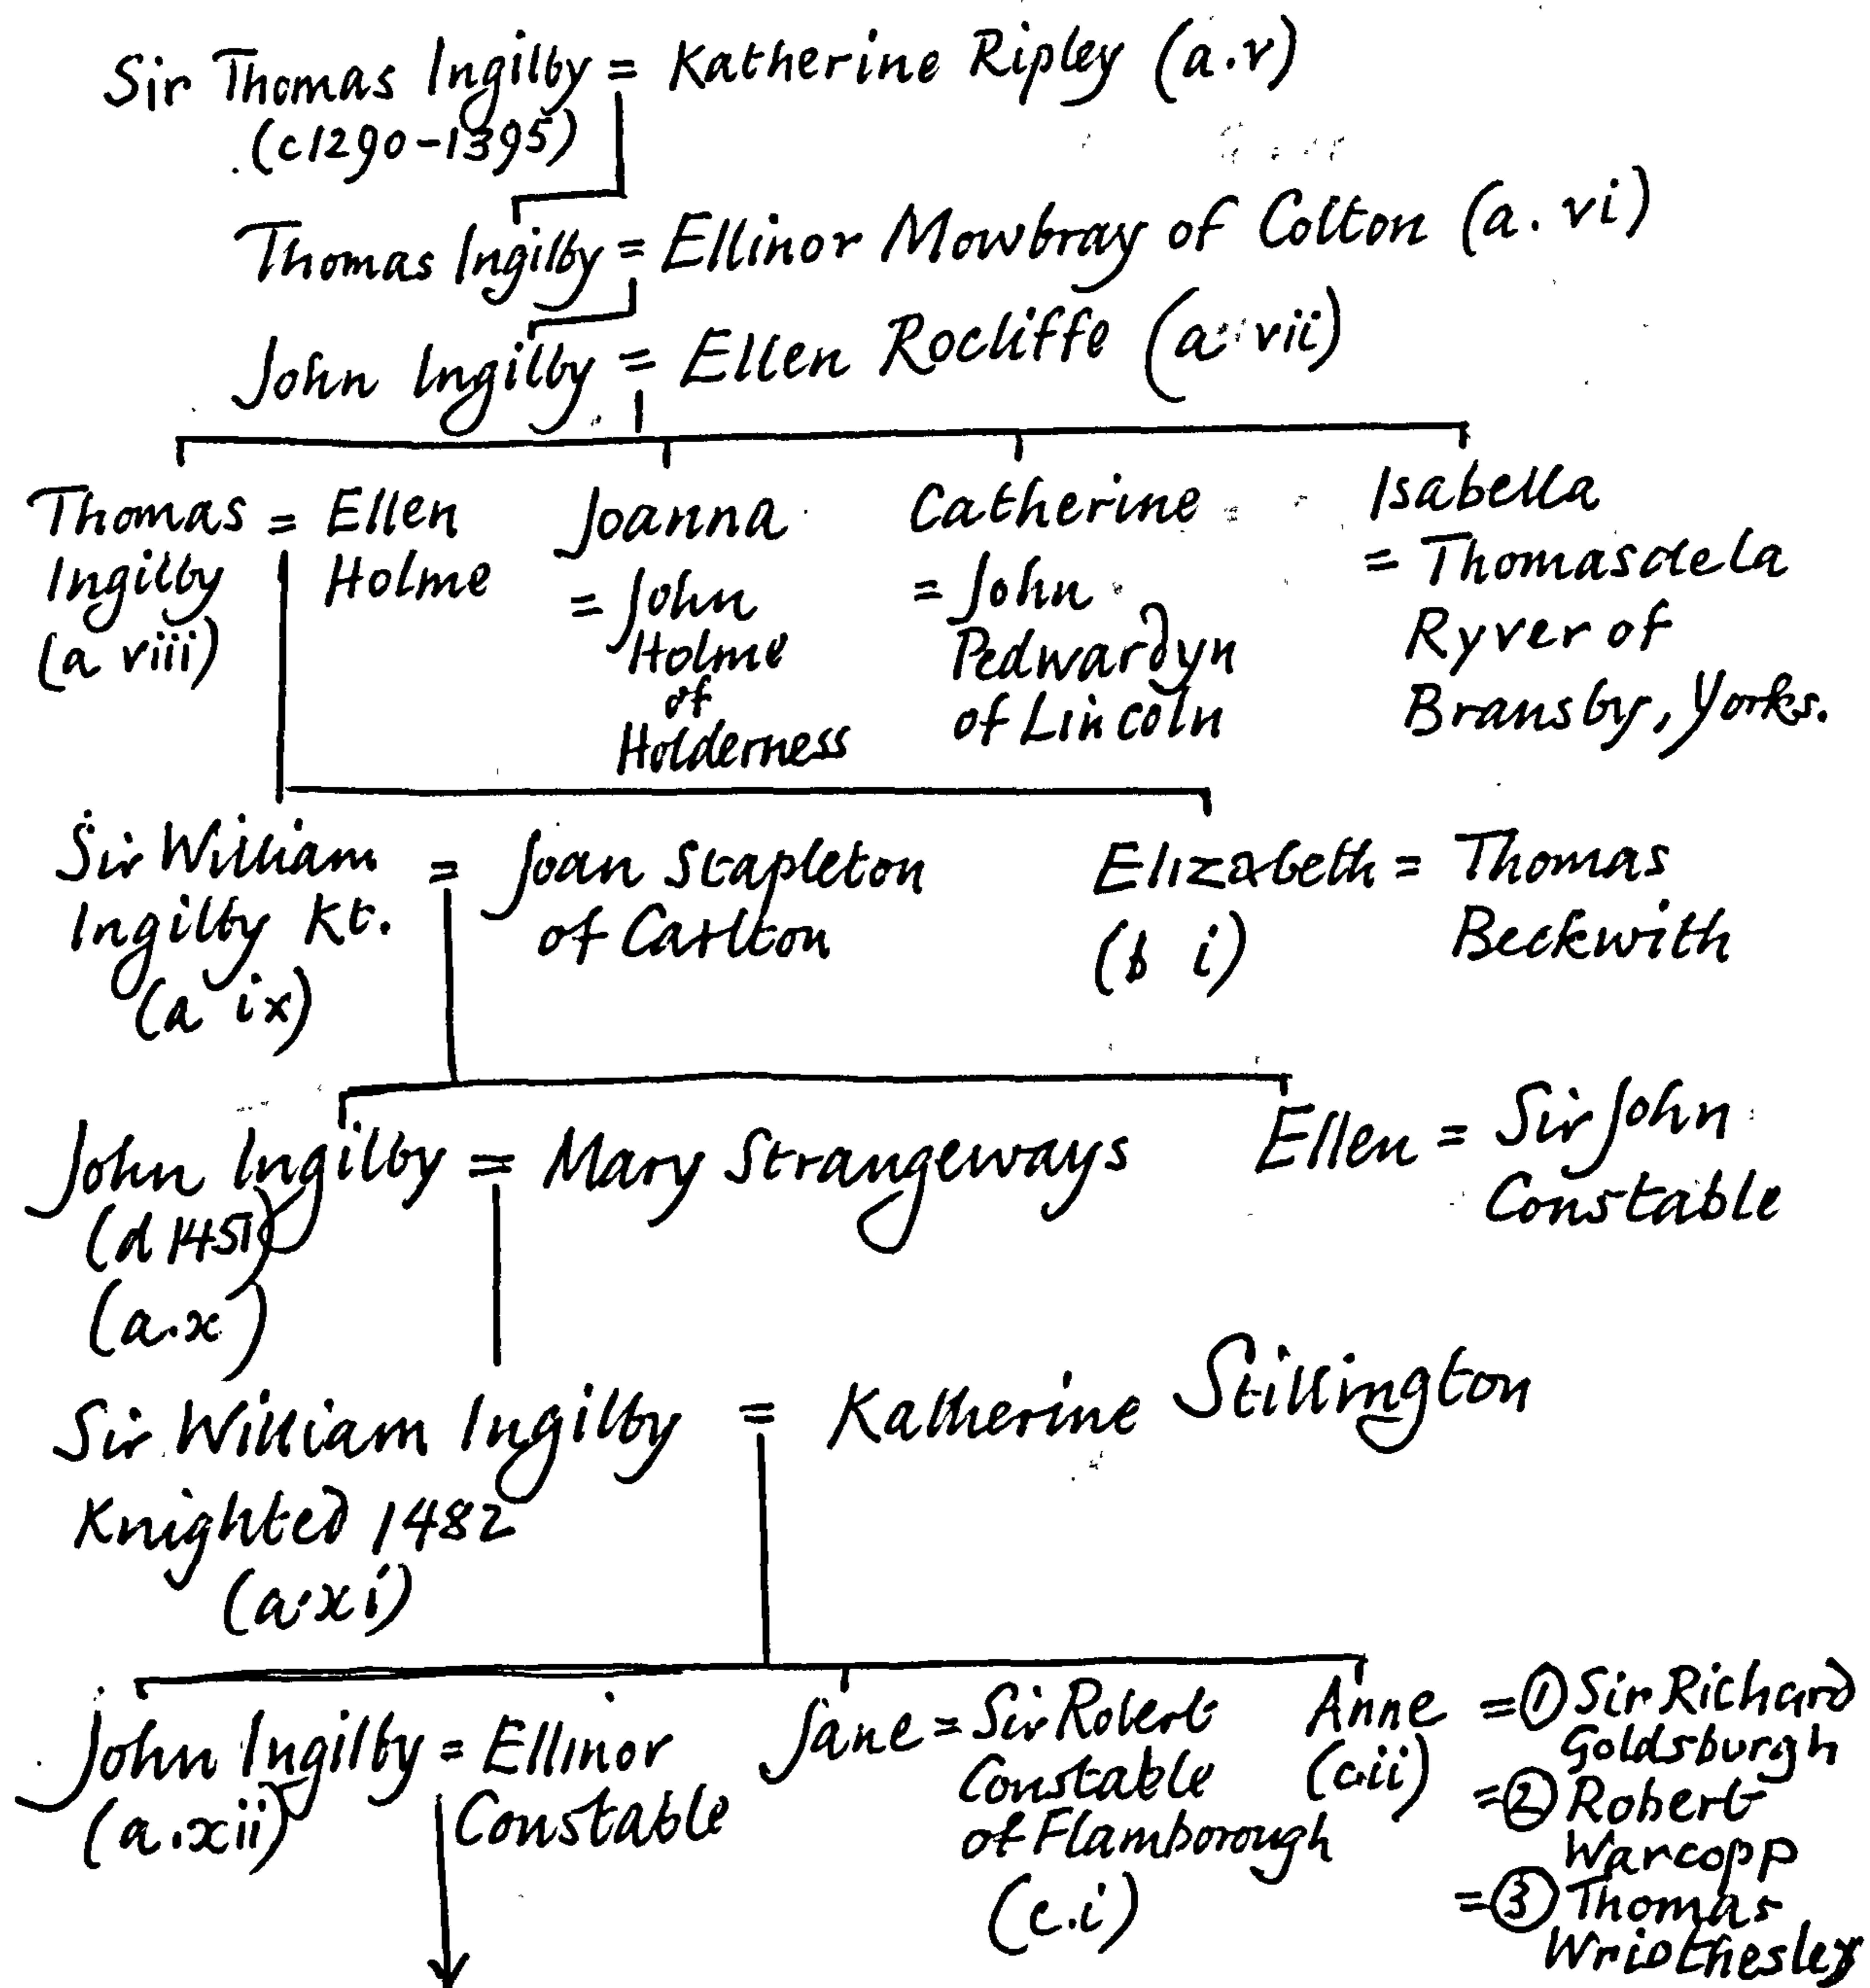 Sir Thomas Ingilby = Katherine Ripley (a.v)
(c1290-1395)
Thomas Ingilby = Ellinor Mowbray of Colton (a. vi)
John Ingilby = Ellen Rocliffe (a. vii)
Thomas = Ellen
Ingilby Holme
(a viii)
Joanna
= John
Holme
of
Holderness
Catherine
= John
Pedwardyn
of Lincoln
Isabella
= Thomas de la
Ryver of
Bransby, Yorks.
Sir William = Joan Stapleton
Ingilby Kt. of Carlton
(a ix)
Elizabeth = Thomas
(b i) Beckwith
John Ingilby = Mary Strangeways
(d 1451)
(a.x)
Ellen = Sir John
Constable
Sir William Ingilby = Katherine Stillington
Knighted 1482
(a.xi)
John Ingilby = Ellinor
(a.xii) Constable
Jane = Sir Robert
Constable
of Flamborough
(c.i)
Anne = ① Sir Richard
(c.ii) Goldsburgh
= ② Robert
Warcopp
= ③ Thomas
Wriothesley